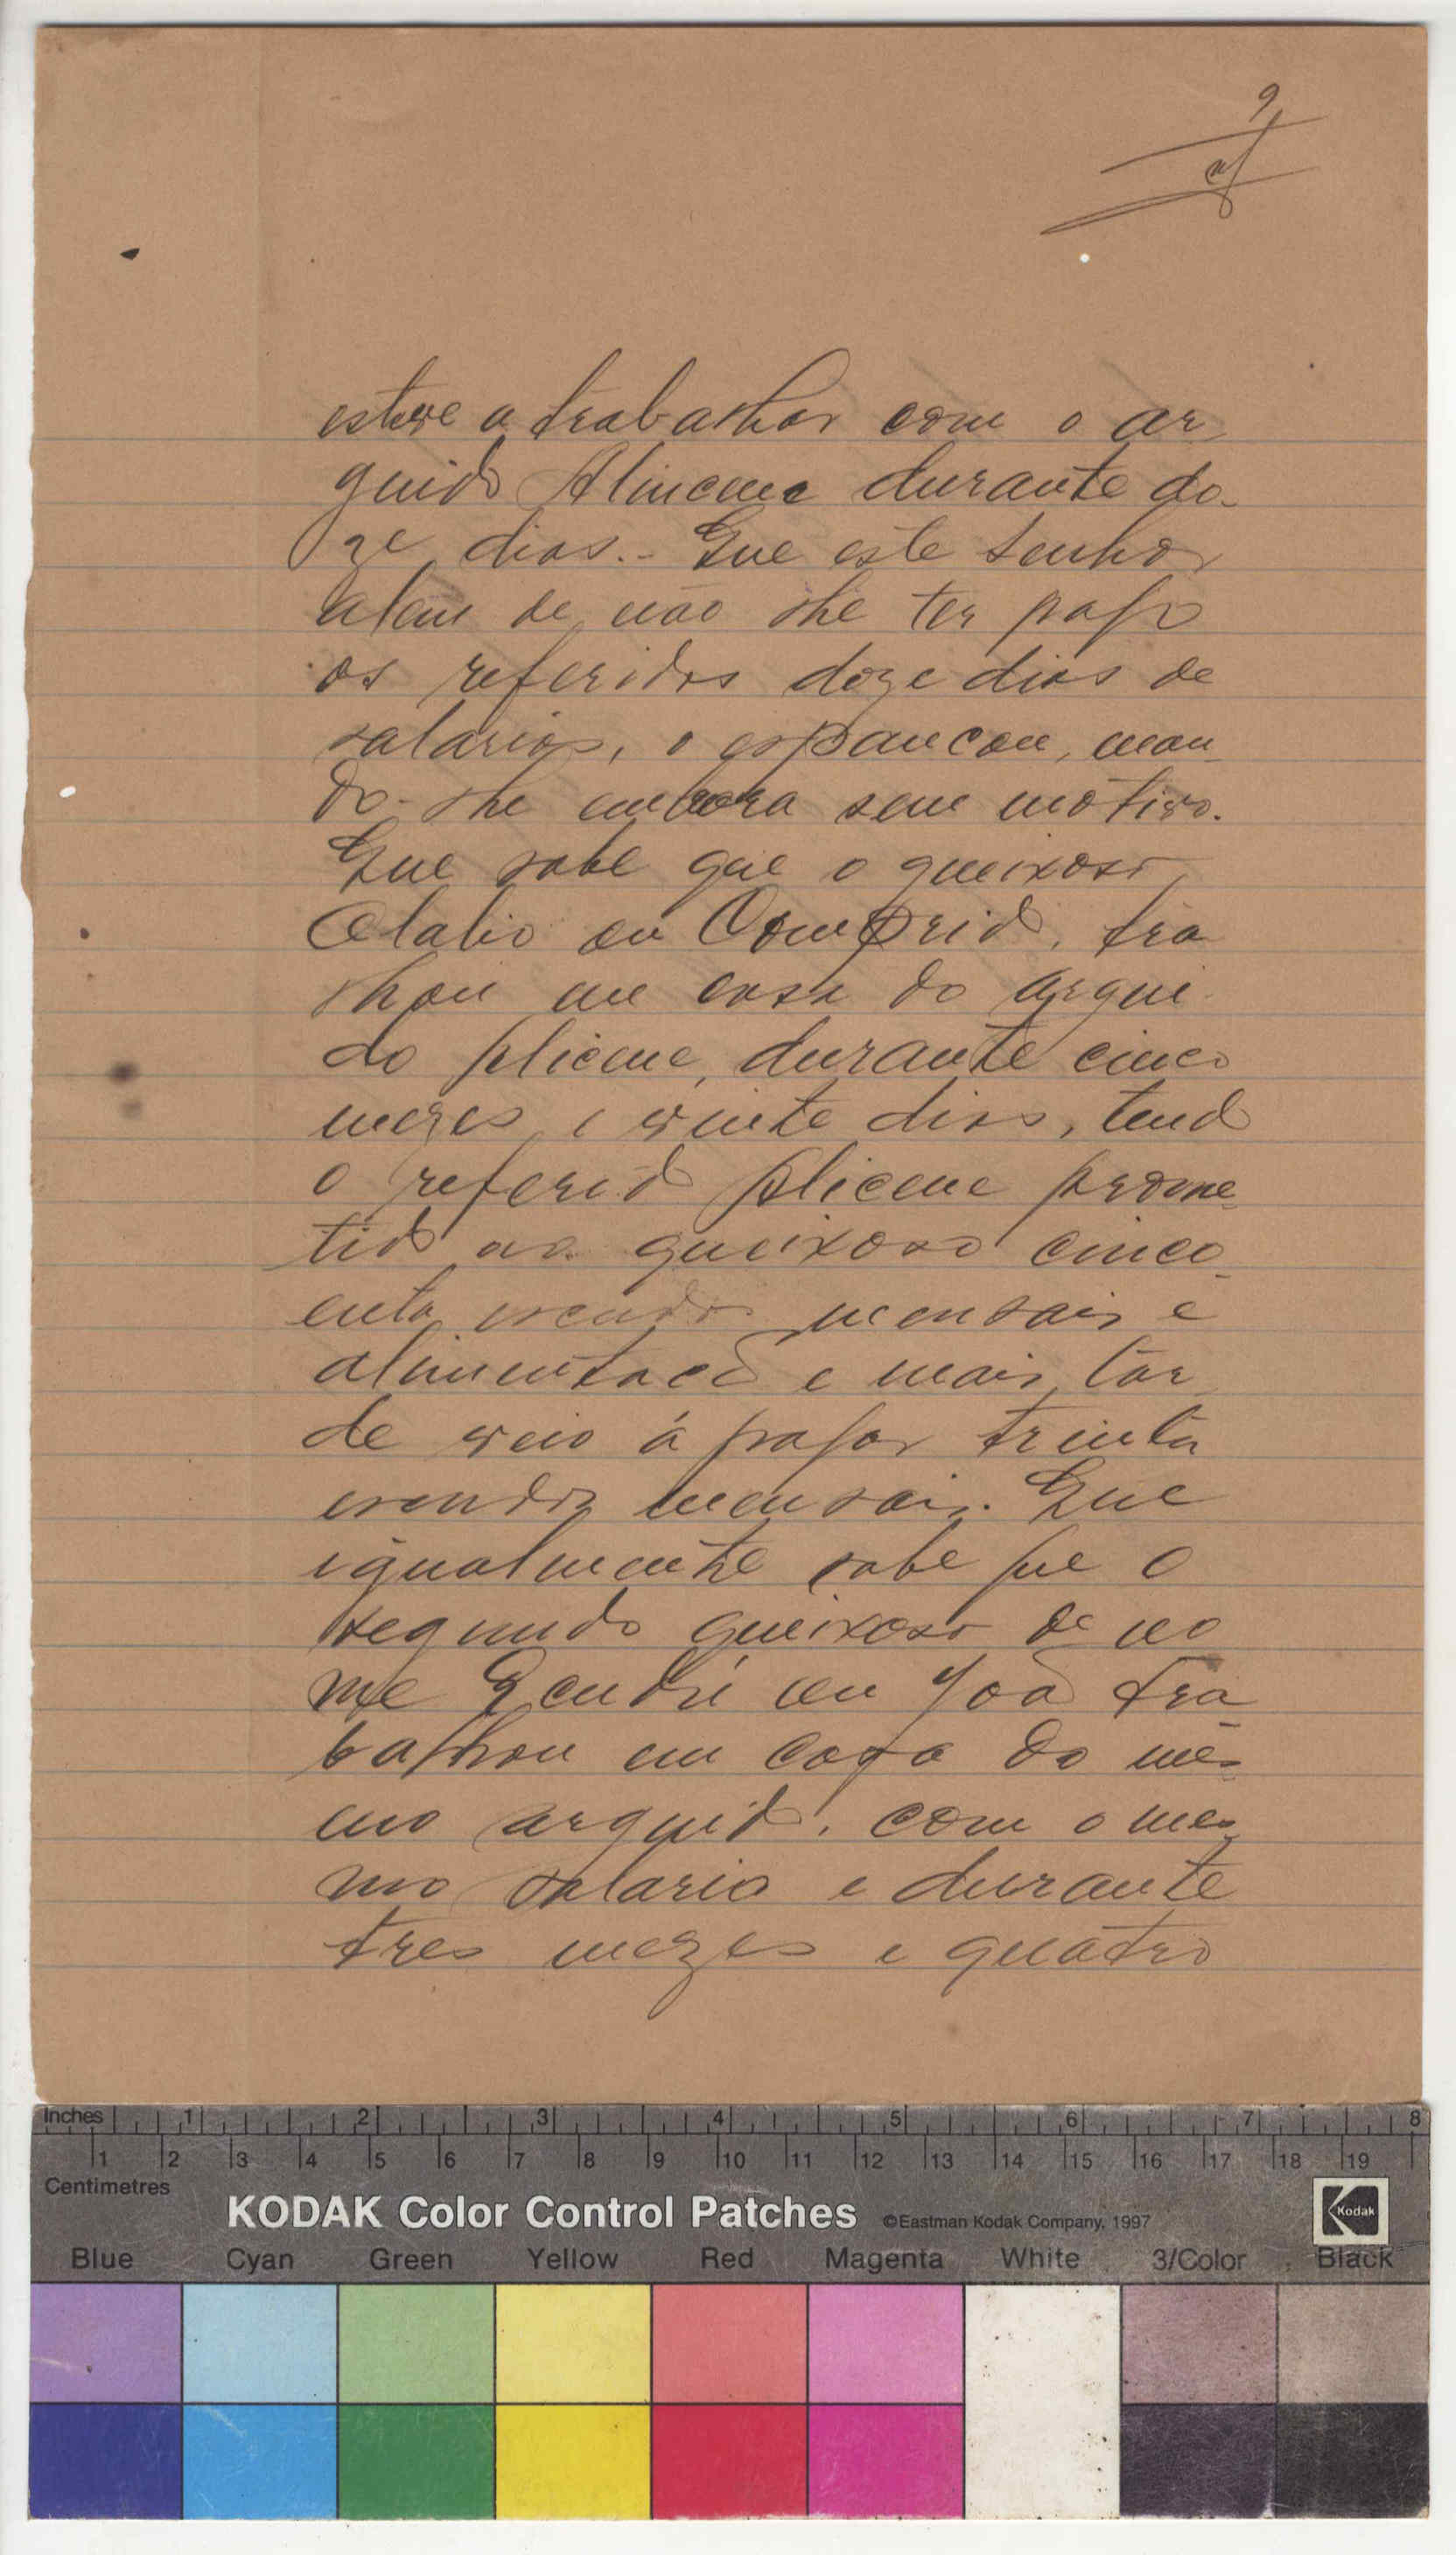 9
esteve a trabalhar com o ar
guido Alincene durante do-
ze dias.- Que este senhor
alem de não lhe ter pago
os referidos doze dias de
salarios, o espancou, man
do-lhe embora sem motivo.
Que sabe que o queixoso
ou Comprido, tra
lhou em casa do argui
do Alicene, durante cinco
mezes e vinte dias, tendo
o referido Alicene prome
tido ao queixoso cinco
enta escudos mensais e
alimentacão e mais tar
de veio á pagar trinta
escudos mensais. Que
igualmente sabe que o
segundo queixoso de no
me ou João tra
balhou em casa do mes
mo arguido, com o mes
mo salario e durante
tres mezes e quatro
Inches 1 2 3 4 5 6 7 8
1 2 3 4 5 6 7 8 9 10 11 12 13 14 15 16 17 18 19
Centimetres
KODAK Color Control Patches ©Eastman Kodak Company, 1997 Kodak
Blue Cyan Green Yellow Red Magenta White 3/Color Black